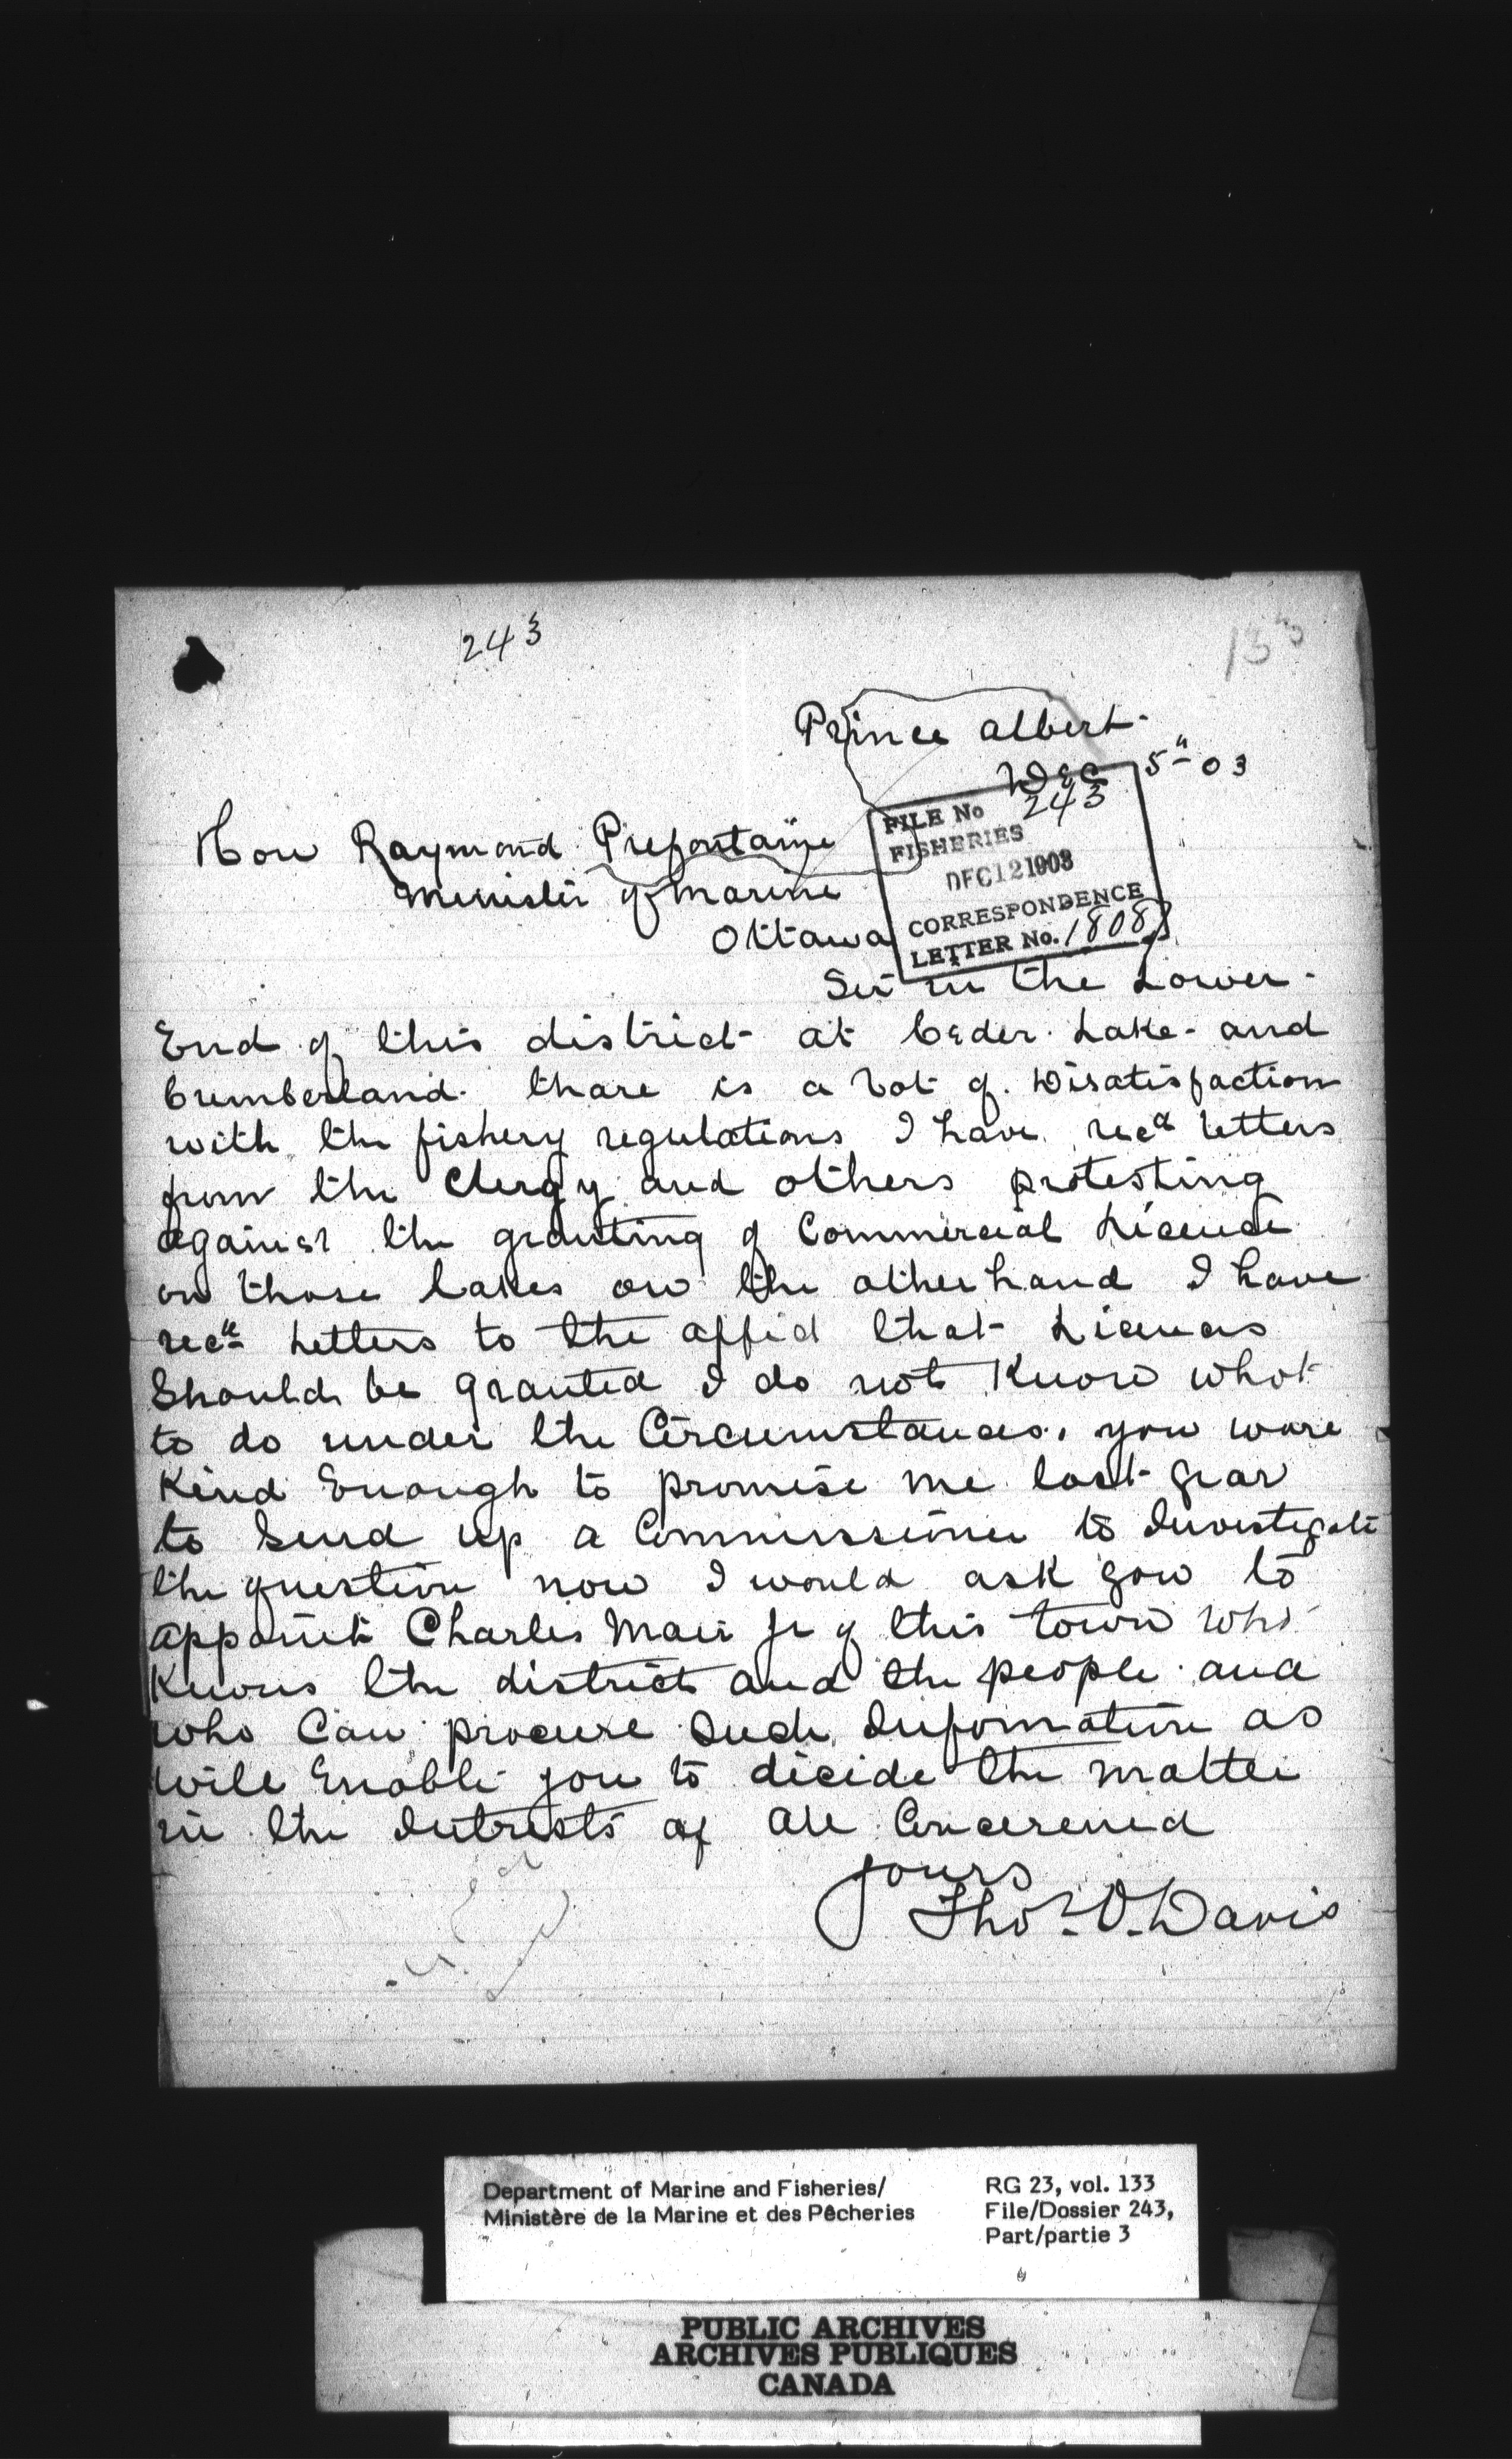 243
133
Prince Albert
Dec 5" 03
FILE No 243
FISHERIES
DEC 12 1903
CORRESPONDENCE
LETTER No. 18087
Hon Raymond Prefontaine
Minister of Marine
Ottawa
Sir in the Lower
End of this district at Ceder Lake and
Cumberland thare is a Lot of Disatisfaction
with the fishery regulations I have recd Letters
from the Clergy and others protesting
against the granting of Commercial Licence
on those Lakes on the other hand I have
recd Letters to the affid that Licences
Should be granted I do not Know what
to do under the Circumstances. you ware
Kind Enough to promise me last year
to Send up a Commissioner to Investigate
the question now I would ask you to
appoint Charles Mair Jr of this town who
Knows the district and the people and
who Can procure Such Information as
will Enable you to decide the matter
in the Intrests of all Concerened
yours
Thos. O. Davis
Department of Marine and Fisheries/
Ministère de la Marine et des Pêcheries
RG 23, vol. 133
File/Dossier 243,
Part/partie 3
PUBLIC ARCHIVES
ARCHIVES PUBLIQUES
CANADA